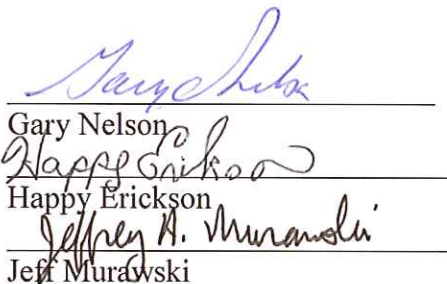 Gary Nelson
Gary Nelson
Happy Erickson
Happy Erickson
Jeffrey A. Murawski
Jeff Murawski